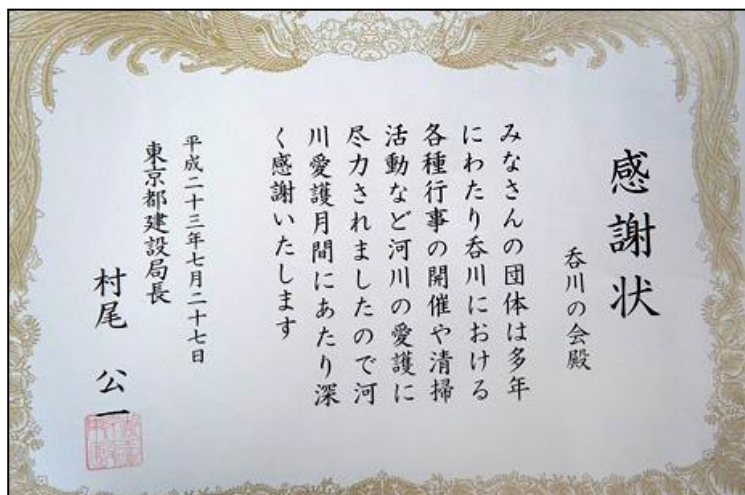 感謝状
呑川の会殿
みなさんの団体は多年
にわたり呑川における
各種行事の開催や清掃
活動など河川の愛護に
尽力されましたので河
川愛護月間にあたり深
く感謝いたします
平成二十三年七月二十七日
東京都建設局長
村尾 公一